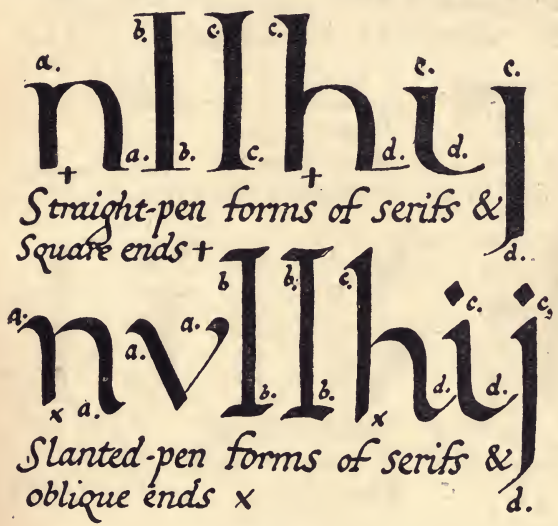 a. b. c. c. c. c.
n I I h i j
+ a. b. c. + d. d.
Straight-pen forms of serifs &
Square ends + d.
a. a. a. b b. c. c. c,
n v I I h i j
x a. b. b. x d. d.
Slanted-pen forms of serifs &
oblique ends x d.